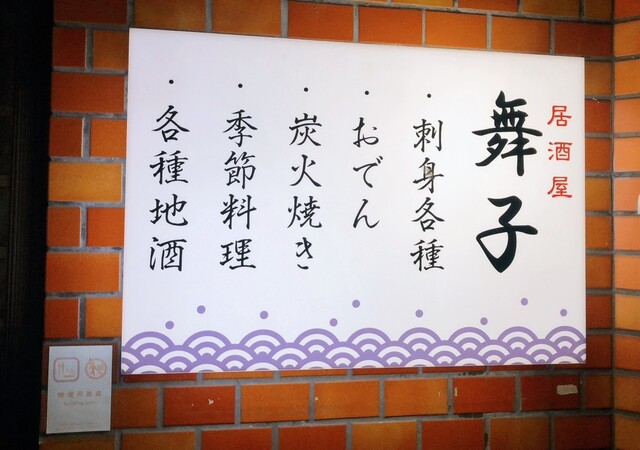 居酒屋
舞子
・刺身各種
・おでん
・炭火焼き
・季節料理
・各種地酒